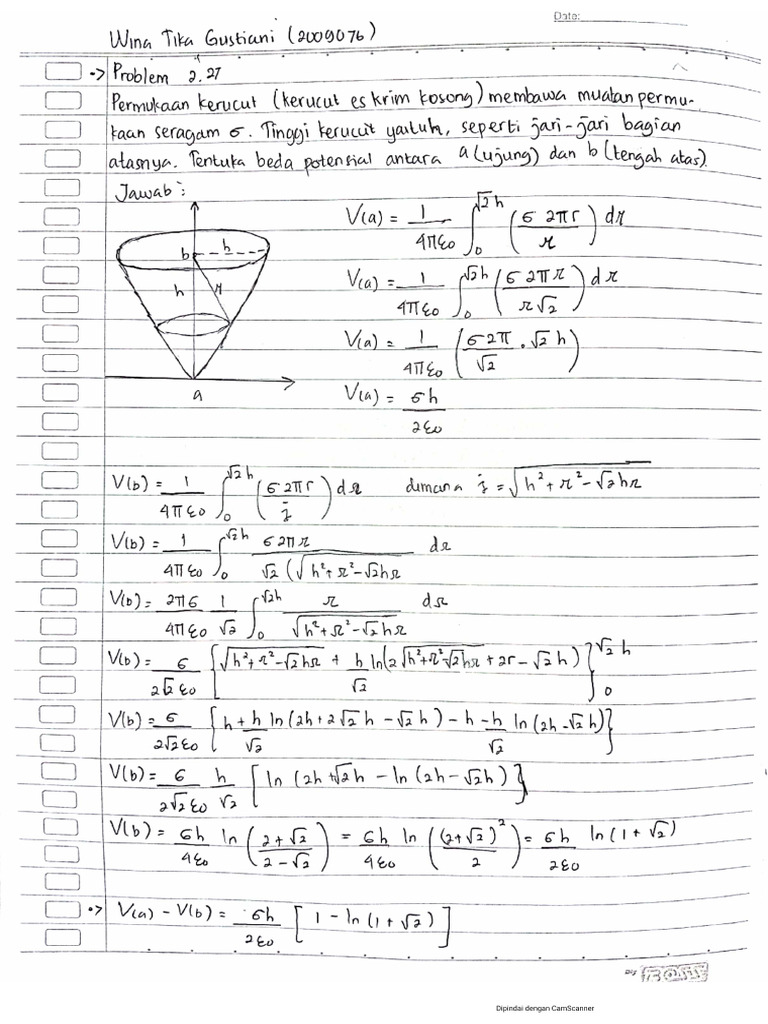 Date:
Wina Tika Gustiani (2009076)
•> Problem 2.27
Permukaan kerucut (kerucut es krim kosong) membawa muatan permu-
kaan seragam σ. Tinggi kerucut yaituh, seperti jari-jari bagian
atasnya. Tentuka beda potensial antara a (ujung) dan b (tengah atas)
Jawab :
b h
h r
a
V(a) = 1/4πε0 ∫₀^√2h (σ 2πr / r) dr
V(a) = 1/4πε0 ∫₀^√2h (σ 2πr / r√2) dr
V(a) = 1/4πε0 (σ2π/√2 . √2 h)
V(a) = σh/2ε0
V(b) = 1/4πε0 ∫₀^√2h (σ 2πr / z̄) dr dimana z̄ = √(h² + r² - √2hr)
V(b) = 1/4πε0 ∫₀^√2h σ2πr / √2 (√(h² + r² - √2hr) dr
V(b) = 2πσ/4πε0 1/√2 ∫₀^√2h r / √(h² + r² - √2hr) dr
V(b) = σ/2√2ε0 {√(h² + r² - √2hr) + h/√2 ln(2√(h² + r² √2hr) + 2r - √2h)}₀^√2h
V(b) = σ/2√2ε0 {h + h/√2 ln (2h + 2√2h - √2h) - h - h/√2 ln (2h - √2h)}
V(b) = σ/2√2ε0 h/√2 [ln (2h + √2h - ln (2h - √2h)}
V(b) = σh/4ε0 ln (2+√2 / 2-√2) = σh/4ε0 ln ((2+√2)²/2) = σh/2ε0 ln (1 + √2)
•> V(a) - V(b) = σh/2ε0 [1 - ln (1 + √2)]
Dipindai dengan CamScanner